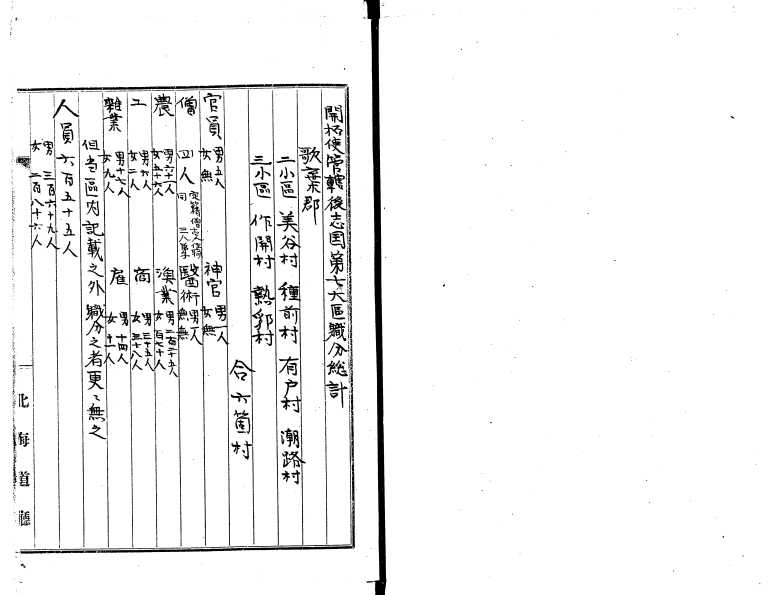 開拓使管轄後志国第七大區職分総計
歌棄郡
二小區 美谷村 種前村 有戸村 潮路村
三小區 作開村 熱郛村
合六箇村
官員 男五人 女無 神官 男一人 女無
僧 四人 醫術 男一人 女無
農 男六十一人 女五十六人 漁業 男二百二十五人 女百七十人
工 男六人 女二人 商 男三十五人 女三十八人
雜業 男十七人 女九人 雇 男十四人 女十一人
但当區内記載之外職分之者更ニ無之
人員六百五十五人
男 三百六十九人
女 二百八十六人
北海道廳